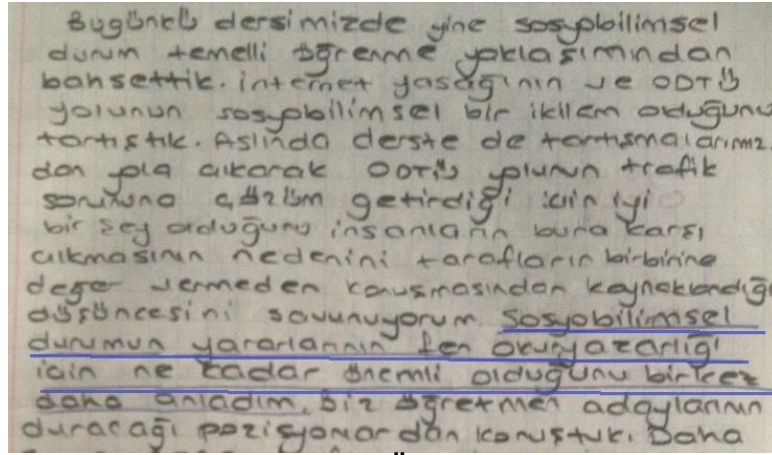 Bugünkü dersimizde yine sosyobilimsel
durum temelli öğrenme yaklaşımından
bahsettik. İnternet yasağının ve ODTÜ
yolunun sosyobilimsel bir ikilem olduğunu
tartıştık. Aslında derste de tartışmalarımız
dan yola çıkarak ODTÜ yolunun trafik
sorununa çözüm getirdiği için iyi
bir şey olduğunu insanların buna karşı
çıkmasının nedenini tarafların birbirine
değer vermeden konuşmasından kaynaklandığı
düşüncesini savunuyorum. Sosyobilimsel
durumun yararlarının fen okuryazarlığı
için ne kadar önemli olduğunu bir kez
daha anladım. Biz öğretmen adaylarının
duracağı pozisyonlardan konuştuk. Daha